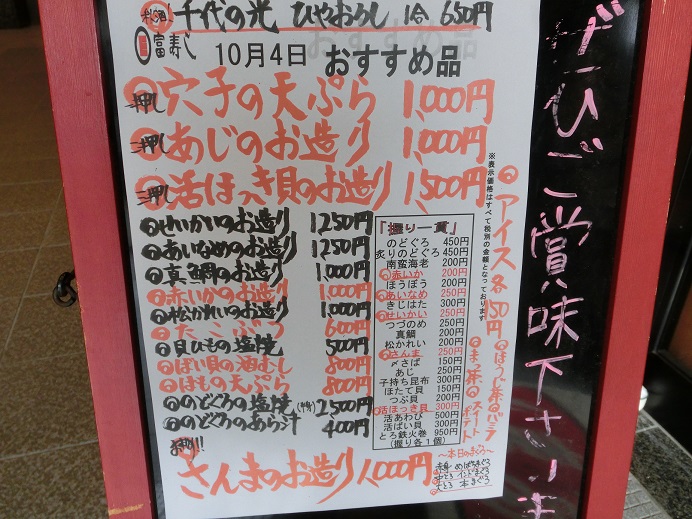 千代の光 ひやおろし 1合 650円
富寿し
10月4日 おすすめ品
押し 穴子の天ぷら 1,000円
一押し あじのお造り 1,000円
二押し 活ほっき貝のお造り 1,500円
せいかいのお造り 1250円
あいなめのお造り 1250円
真鯛のお造り 1,000円
赤いかのお造り 1,000円
松かれいのお造り 1,000円
たこぶつ 600円
貝ひもの塩焼 500円
ばい貝の酒むし 800円
はもの天ぷら 800円
のどぐろの塩焼 (半身) 2,500円
のどぐろのあら汁 400円
さんまのお造り 1,000円
「握り一貫」
のどぐろ 450円
炙りのどぐろ 450円
南蛮海老 200円
赤いか 200円
ほうぼう 200円
あいなめ 250円
きじはた 300円
せいかい 250円
つづのめ 250円
真鯛 200円
松かれい 200円
さんま 250円
〆さば 150円
あじ 250円
子持ち昆布 300円
ほたて貝 150円
つぶ貝 200円
活ほっき貝 300円
活あわび 500円
活ばい貝 300円
とろ鉄火巻 950円
(握り各1個)
※表示価格はすべて税別の金額となっております
アイス 各150円
ほうじ茶 バニラ
まっ茶 スイートポテト
~本日のまぐろ~
赤身 めばちまぐろ
中とろ インドまぐろ
大とろ 本まぐろ
ぜひご賞味下さいま